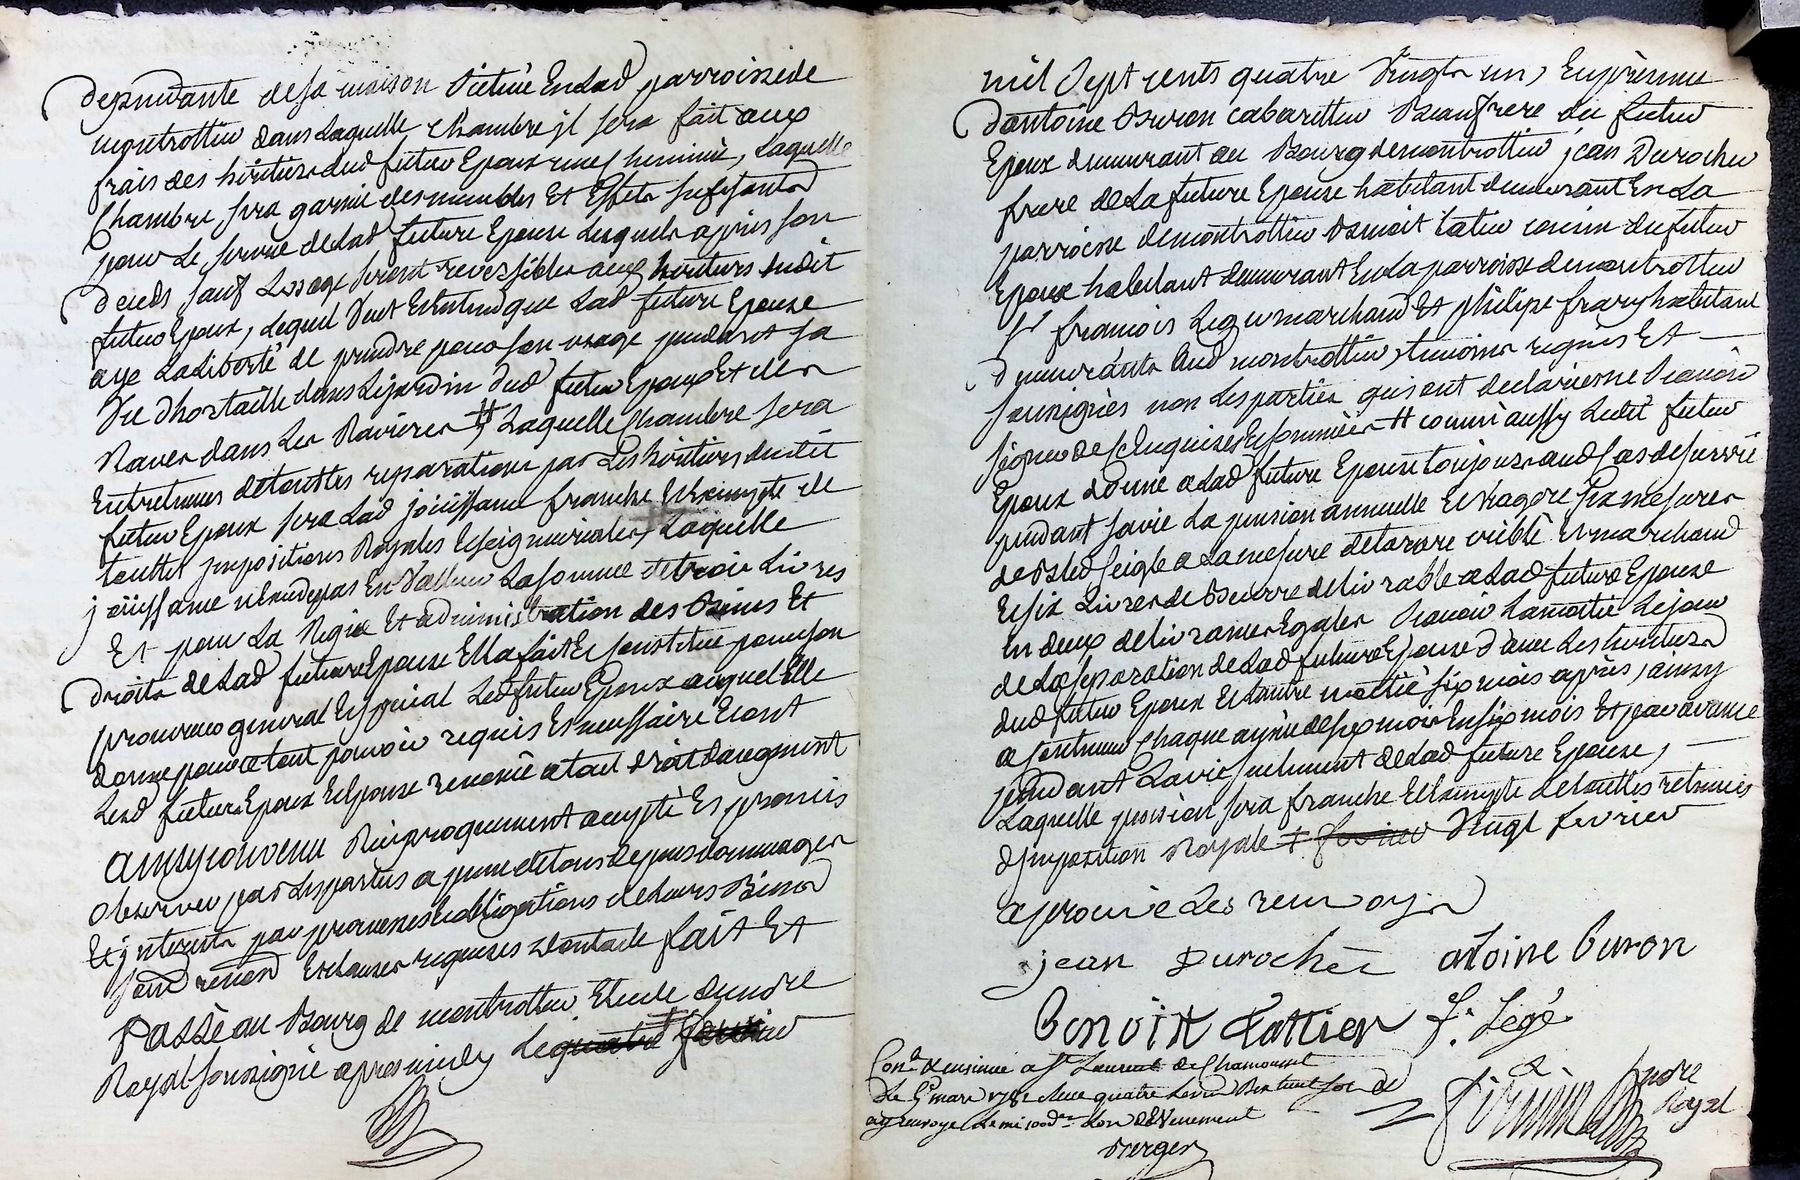 dependante de sa maison située En Lad parroisse de
montrottier dans Laquelle chambre jl sera fait aux
frais des héritiers dud futeur Epoux une cheminée, Laquelle
Chambre sera garnie des meubles Et Effets sufisants
pour Le service de Lad future Epouse Lesquels après son
décès sauf Lusage seront reversibles aux héritiers dudit
futeur Epoux, Lequel veut Et Entend que Lad future Epouse
aye La Liberté de prendre pour son usage pendant sa
Vie dhortaille dans Le jardin dud futeur Epoux Et des
Raves dans Les Ravières # Laquelle chambre sera
Entretenues de touttes reparations par Les héritiers dudit
futeur Epoux sera Lad jouissance franche Et Exempte de
touttes jmpositions Royales Et seigneuriales, Laquelle
jouissance nExcede pas En Valleur La somme de trois Livres
Et pour La Regie Et administration des Biens Et
droits de Lad future Epouse Elle a fait Et constitué pour son
procureur general Et special Led futeur Epoux auquel Elle
donne pour ce tout pouvoir requis Et necessaire Et ont
Lesd futeurs Epoux Et Epouse renoncé a tout droit daugment
ainsy convenu Reciproquement accepté Et promis
observer par Les parties a peine de tous depens dommages
Et jnterets par promesses Et obligations de Leurs Biens
renond Et clauses requises dont acte fait Et
Passé au Bourg de montrottier Etude du nore
Royal soussigné apres midy Le quatre fevrier
mil sept cents quatre Vingts un, En présence
dantoine Buron cabarettier Beaufrere du futeur
Epoux demeurant au Bourg de montrottier jean Durocher
frere de La future Epouse habitant demeurant En La
parroisse de montrottier Benoit Catier cousin du futeur
Epoux habitant demeurant En La parroisse de montrottier
Sr francois Legé marchand Et philipe frary habitants
demeurants aud montrottier, temoins requis Et
soussignés non Les parties qui ont declaré ne sçavoir
signer de ce Enquises Et sommées # comme aussy Ledit futeur
Epoux donne a Lad future Epouse toujours aud cas de survie
pendant sa vie La pension annuelle Et viagere six mesures
de Bled seigle a La mesure de tarare criblé Et marchand
Et six Livres de Beurre delivrable a Lad future Epouse
En deux delivrances Egales sçavoir La moitié Le jour
de La séparation de Lad future Epouse d'avec Les héritiers
dud futeur Epoux Et Lautre moitié six mois après, ainsy
a continuer chaque année de six mois En six mois Et par avance
pendant La vie seulement de Lad future Epouse,
Laquelle pension sera franche Et Exempte de touttes retenues
djmposition Royale + fevrier Vingt fevrier
aprouvé Les renvoys
jean Durocher antoine buron
benoist Cattier f. Legé
Conle Et insinué a St Laurent de Chamousset
Le 5 mars 1781 Reçu quatre Livres
Berger
nore
Royal